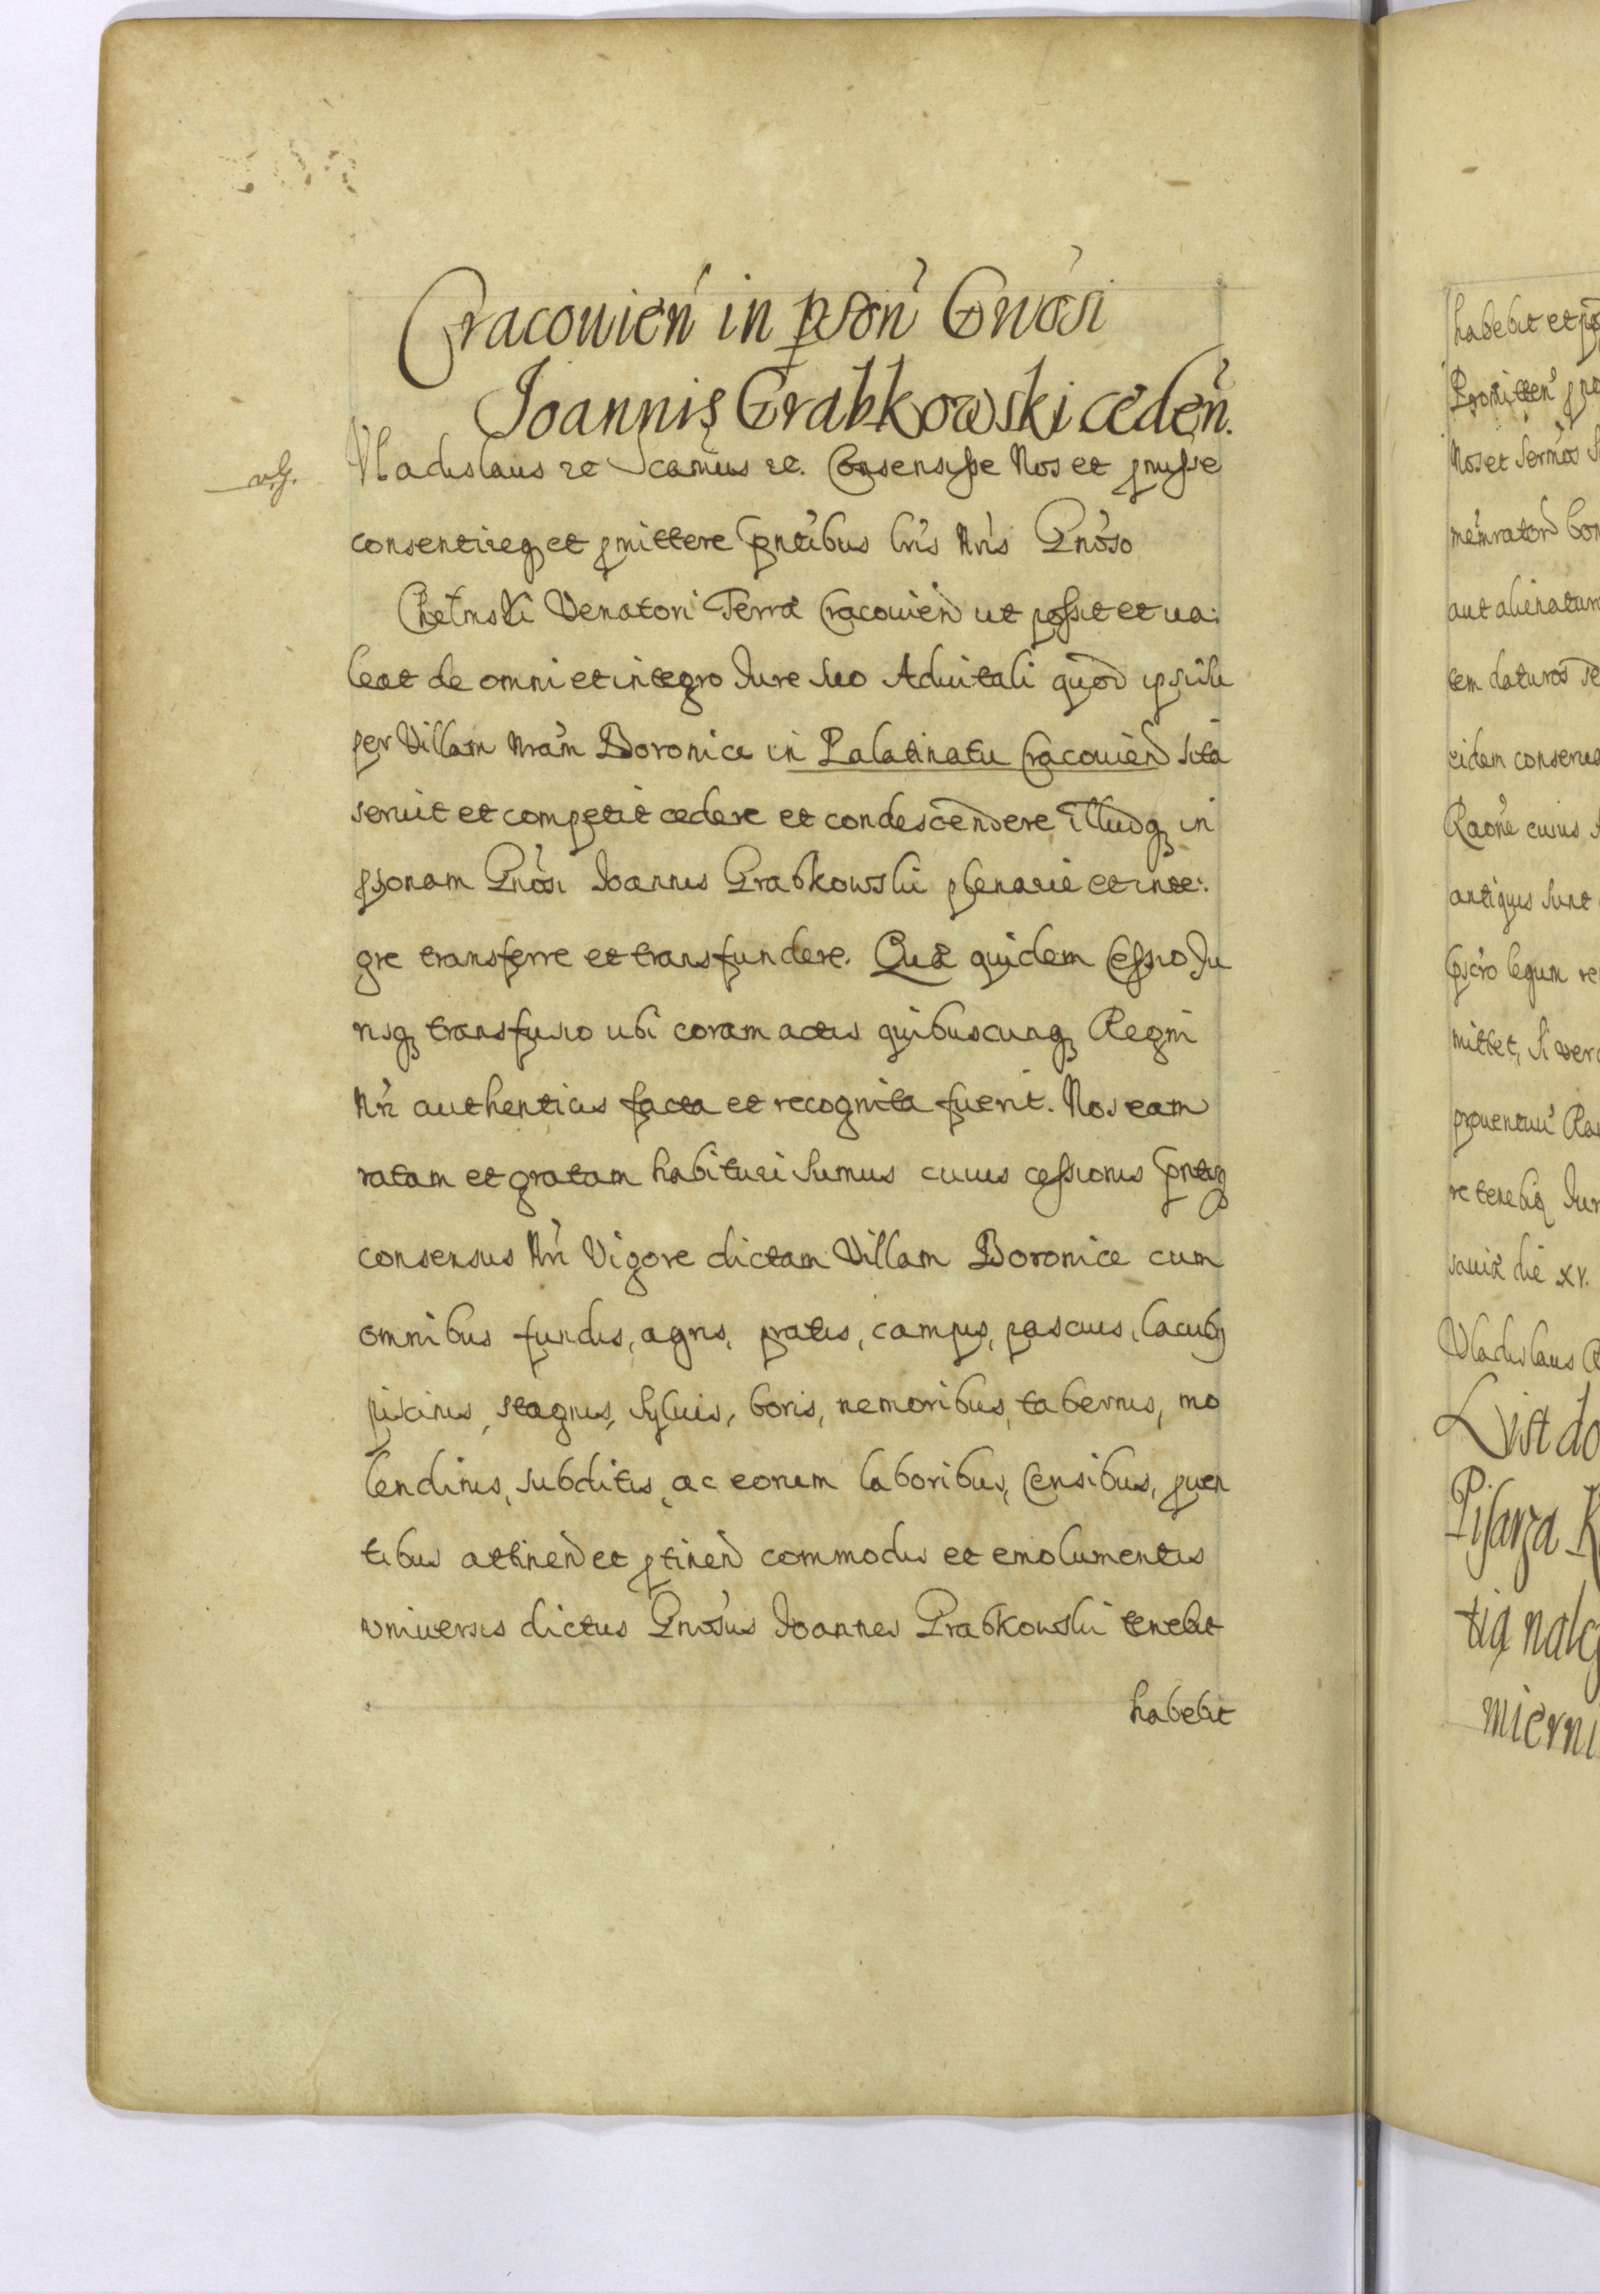 Cracouień in pson̄ Gnosi
Joannis Grabkowski cedeń.
Vladislaus etc Scamus etc. Consensisse Nos et pmisse
consentireq et pmittere pntibus lris nris Gnoso
Chełmski Venatori Terræ Cracouień ut possit et va:
leat de omni et integro Jure suo Aduitali quod ipsi su
per Villam nram Boronice in Palatinatu Cracouień sita
seruit et competit cedere et condescendere, illudq in
psonam Gnosi Joannis Grabkowski plenarie et inte:
gre transferre et transfundere. Quæ quidem Cessio Ju
risq transfusio ubi coram actis quibuscunq Regni
Nri authenticis facta et recognita fuerit. Nos eam
ratam et gratam habituri sumus cuius cessionis pntisq
consensus Nri Vigore dictam Villam Boronice cum
omnibus fundis, agris, pratis, campis, pascuis, lacubq
piscinis, stagnis, syluis, boris, nemoribus, tabernis, mo
lendinis, subditis, ac eorum laboribus, Censibus, puen
tibus attineń et ptineń commodis et emolumentis
vniuersis dictus Gnosus Joannes Grabkowski tenebit
habebit
habebit et
Promitteń
Nos et Sermos
memrator bon
aut alienatum
tem daturos
eidem conserua
Raone cuius
antiquis sunt
pscro legum re
mittet, si vero
prouentuu Ra
retenebiq Jur
sauiæ die xv.
Vladislaus R
List do
Pisarza K
tią nalg
mierni